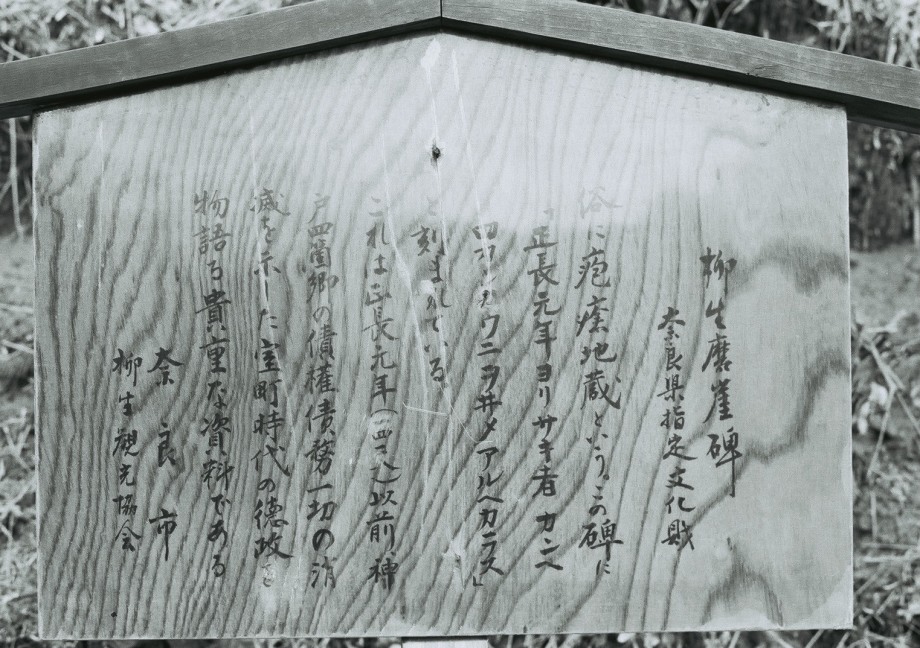 柳生磨崖碑
奈良県指定文化財
俗に疱瘡地蔵という。この碑に
「正長元年ヨリサキ者カンヘ
四カンカウニヲヰメアルヘカラス」
と刻まれている。
これは正長元年(一四二八)以前、神
戸四箇郷の債権債務一切の消
滅を示した室町時代の徳政を
物語る貴重な資料である
奈良市
柳生観光協会